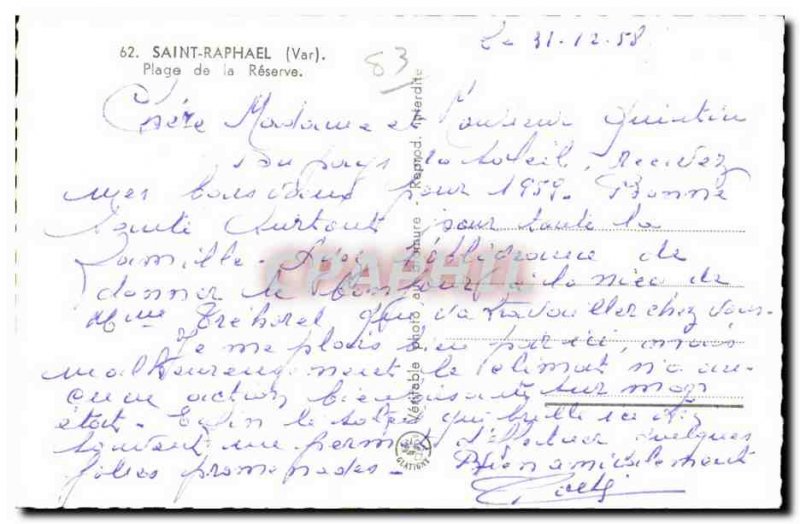 62. SAINT-RAPHAEL (Var).
Plage de la Réserve.
83
Le 31-12-58
Chère Madame et Monsieur Quintin
Du pays du soleil, recevez
mes bons vœux pour 1959. Bonne
Santé surtout pour toute la
famille. Ayez l'obligeance de
donner le bonjour à la nièce de
Mme Tréhorel qui va travailler chez vous.
Je me plais bien par ici, mais
malheureusement le climat n'a au-
cune action bienfaisante sur mon
état. Enfin le soleil qui brille ici
souvent me permet d'effectuer quelques
folies promenades. Bien amicalement
Véritable photo au bromure - Reprod. interdite
CPAPHIL
GLATIGNY